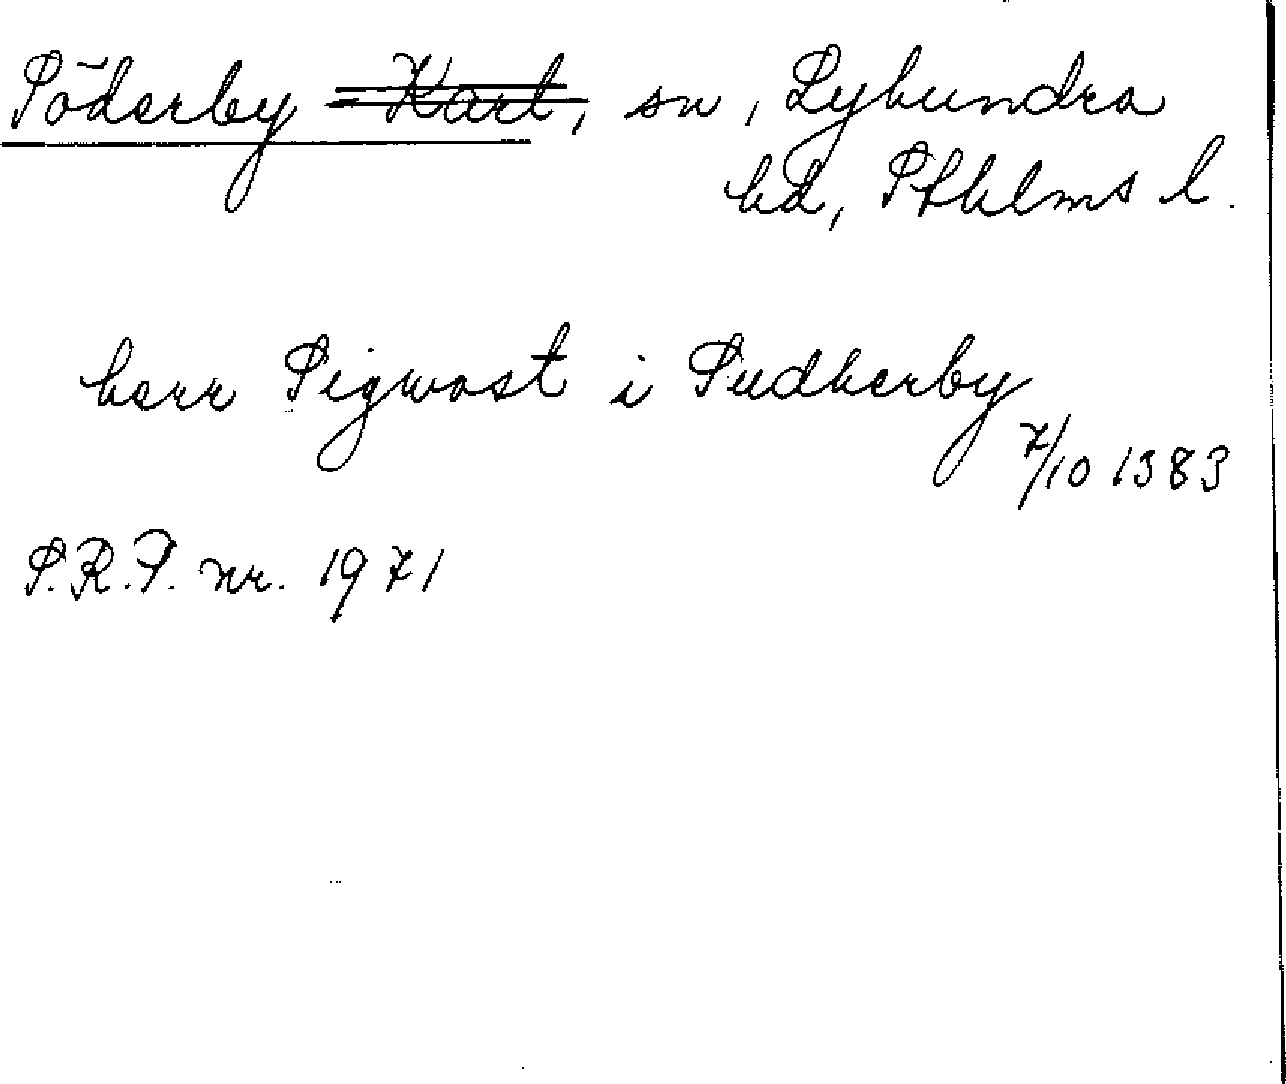 Söderby - Karl, sn, Lyhundra
hd, Sthlms l.
herr Sigwast i Sudherby
7/10 1383
S.R.P. nr. 1971